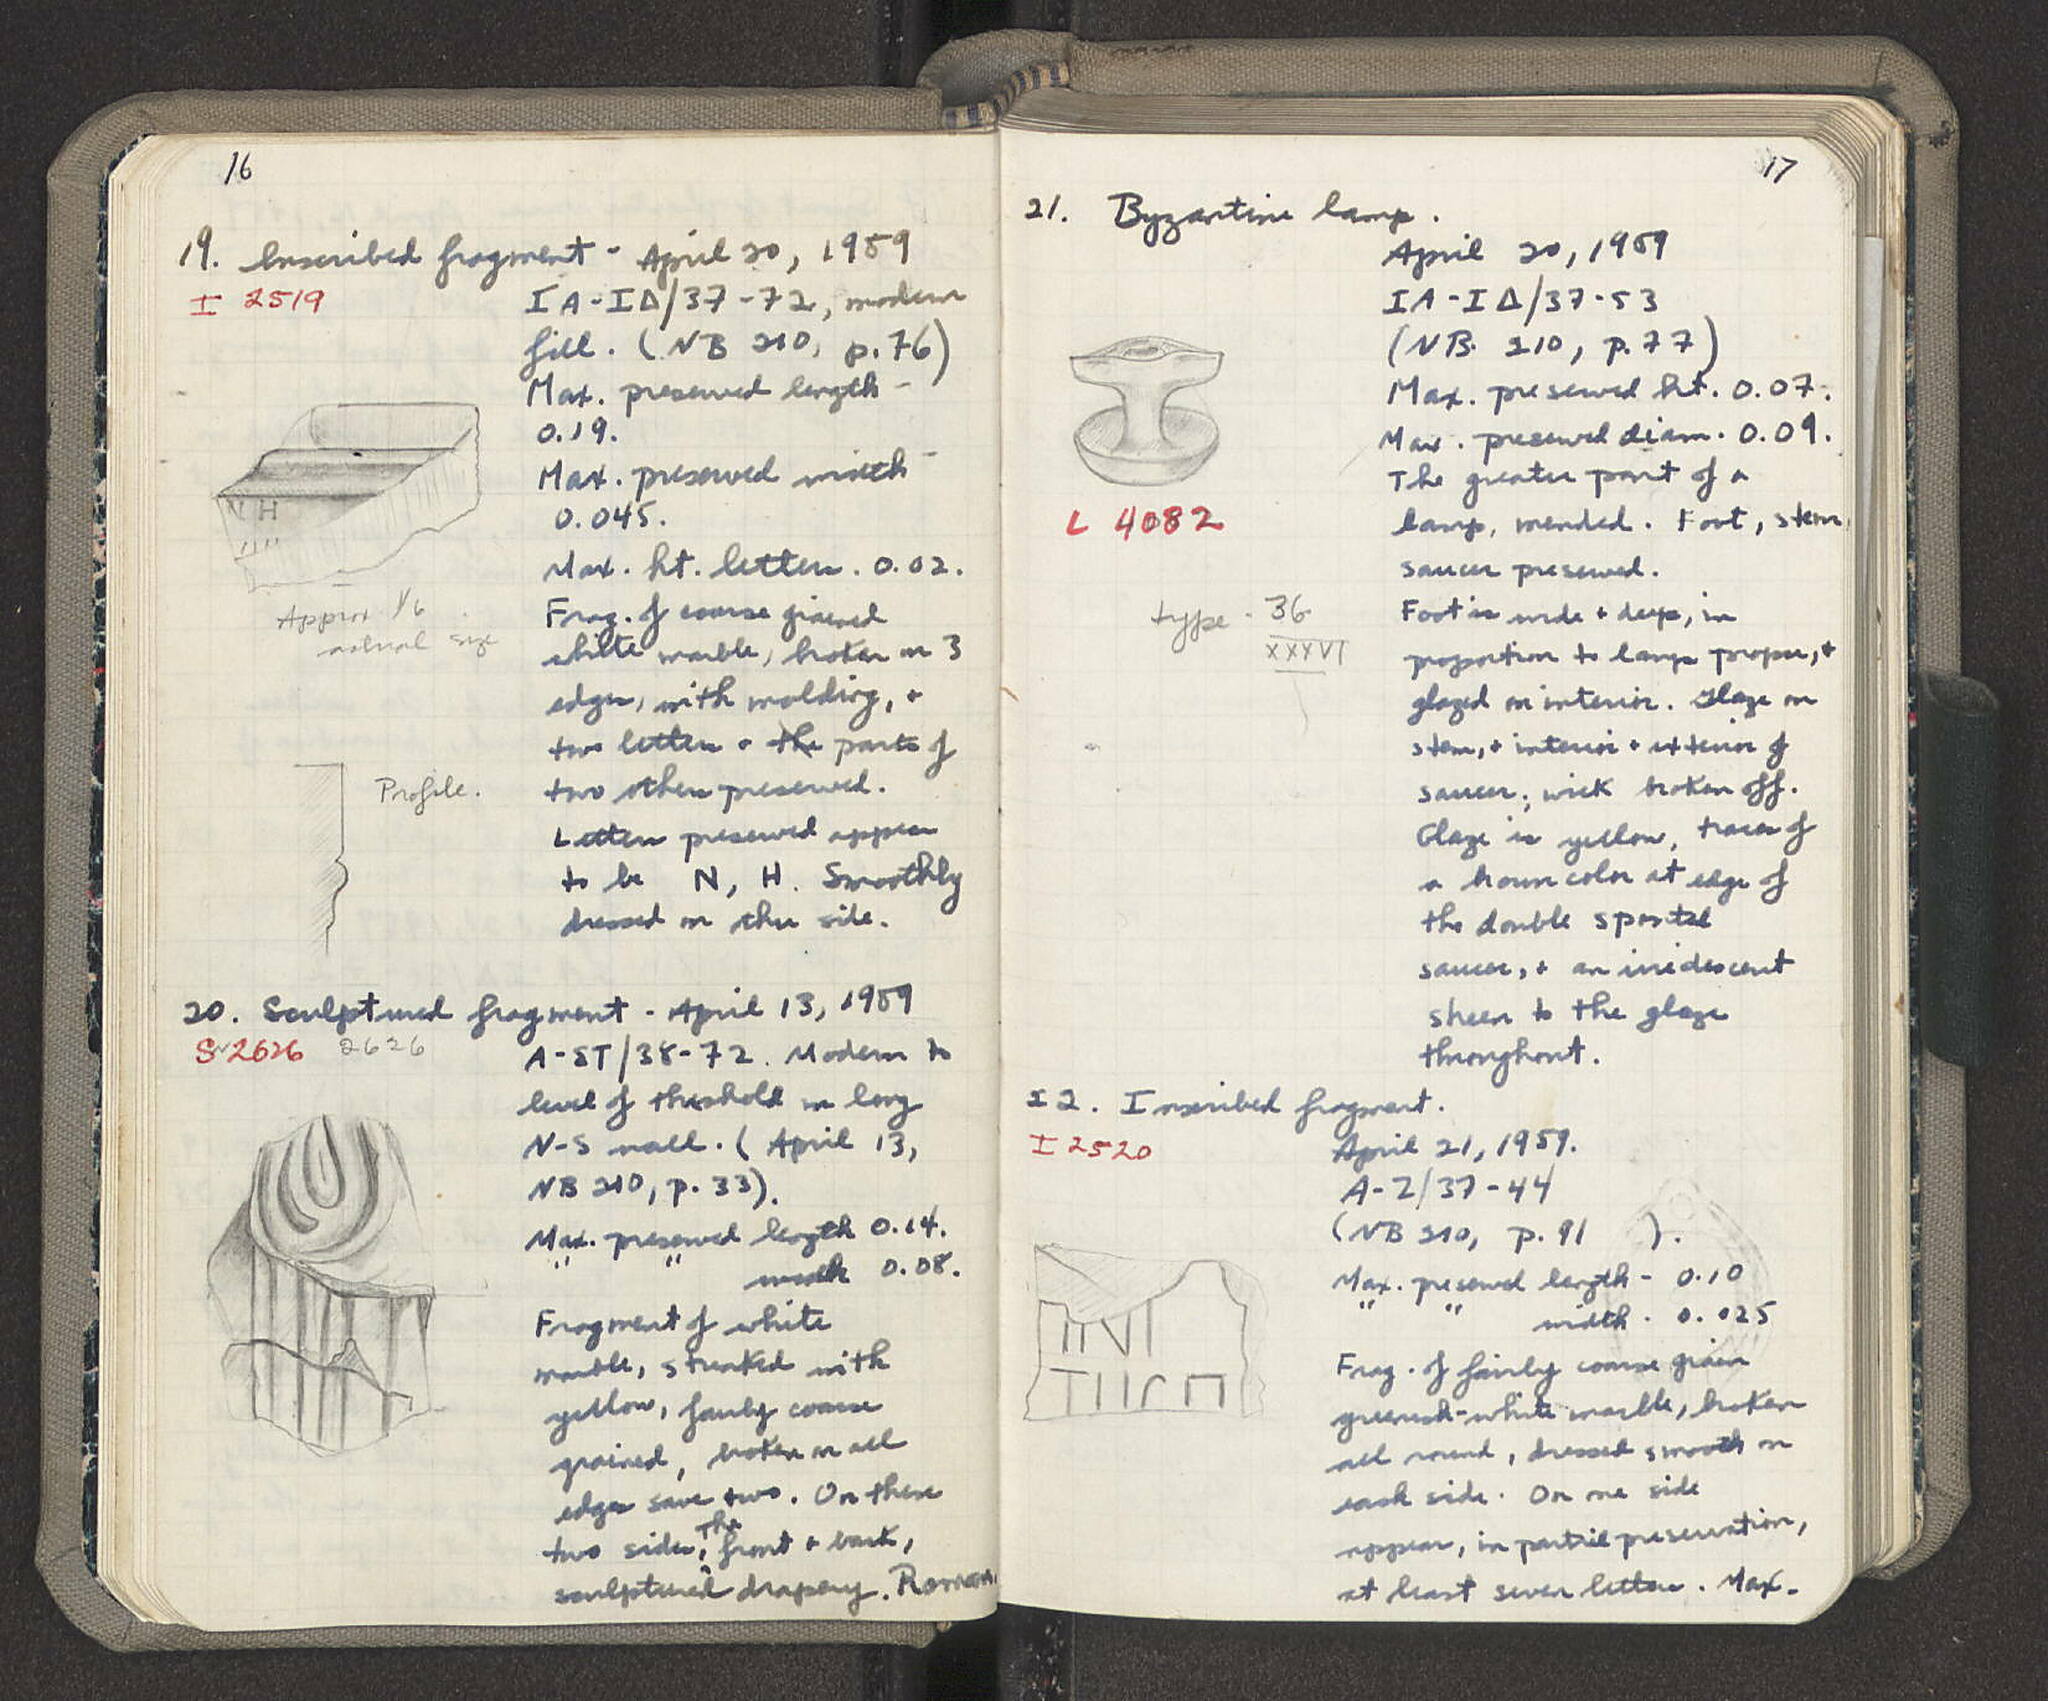 16
19. Inscribed fragment - April 20, 1959
I 2519
IA-IΔ/37-72, modern
fill. (NB 210, p. 76)
Max. preserved length -
0.19.
Max. preserved width -
0.045.
Max. ht. letters. 0.02.
N H
Approx 1/6
actual size
Frag. of coarse grained
white marble, broken on 3
edges, with molding, +
two letters + the parts of
two others preserved.
Profile.
Letters preserved appear
to be N, H. Smoothly
dressed on other side.
20. Sculptured fragment - April 13, 1959
S 2626 2626
A-ST/38-72. Modern to
level of threshold in long
N-S wall. (April 13,
NB 210, p. 33).
Max. preserved length 0.14.
" " width 0.08.
Fragment of white
marble, streaked with
yellow, fairly coarse
grained, broken on all
edges save two. On these
two sides, the front + back,
sculptured drapery. Roman.
17
21. Byzantine lamp.
April 20, 1959
IA-IΔ/37-53
(NB. 210, p. 77)
Max. preserved ht. 0.07.
Max. preserved diam. 0.09.
The greater part of a
L 4082
lamp, mended. Foot, stem,
saucer preserved.
type - 36
XXXVI
Foot is wide + deep, in
proportion to lamp proper, +
glazed on interior. Glaze on
stem, + interior + exterior of
saucer; wick broken off.
Glaze is yellow, traces of
a brown color at edge of
the double spouted
saucer, + an iridescent
sheen to the glaze
throughout.
22. Inscribed fragment.
I 2520
April 21, 1959.
A-Z/37-44
(NB 210, p. 91 ).
Max. preserved length - 0.10
" " width - 0.025
Frag. of fairly coarse grain
greenish-white marble, broken
all round, dressed smooth on
each side. On one side
appear, in partial preservation,
at least seven letters. Max.